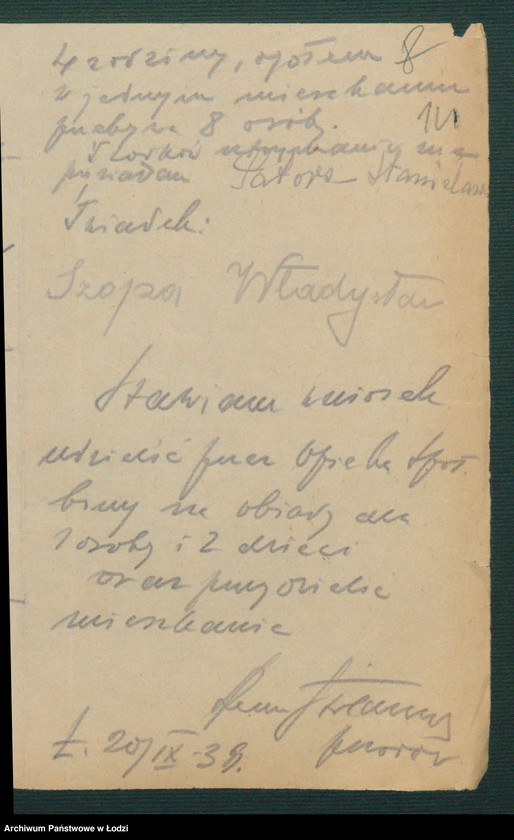 4 rodziny, ogółem 8
w jednym mieszkaniu
przebywa 8 osób.
Środków utrzymania nie
posiadam Satora Stanisława
Świadek:
Szopa Władysław
Stawiam wniosek
udzielić przez Opiekę Społ.
bony na obiady dla
1 osoby i 2 dzieci
oraz przydziele
mieszkanie
Ł. 20/IX-39.
Archiwum Państwowe w Łodzi